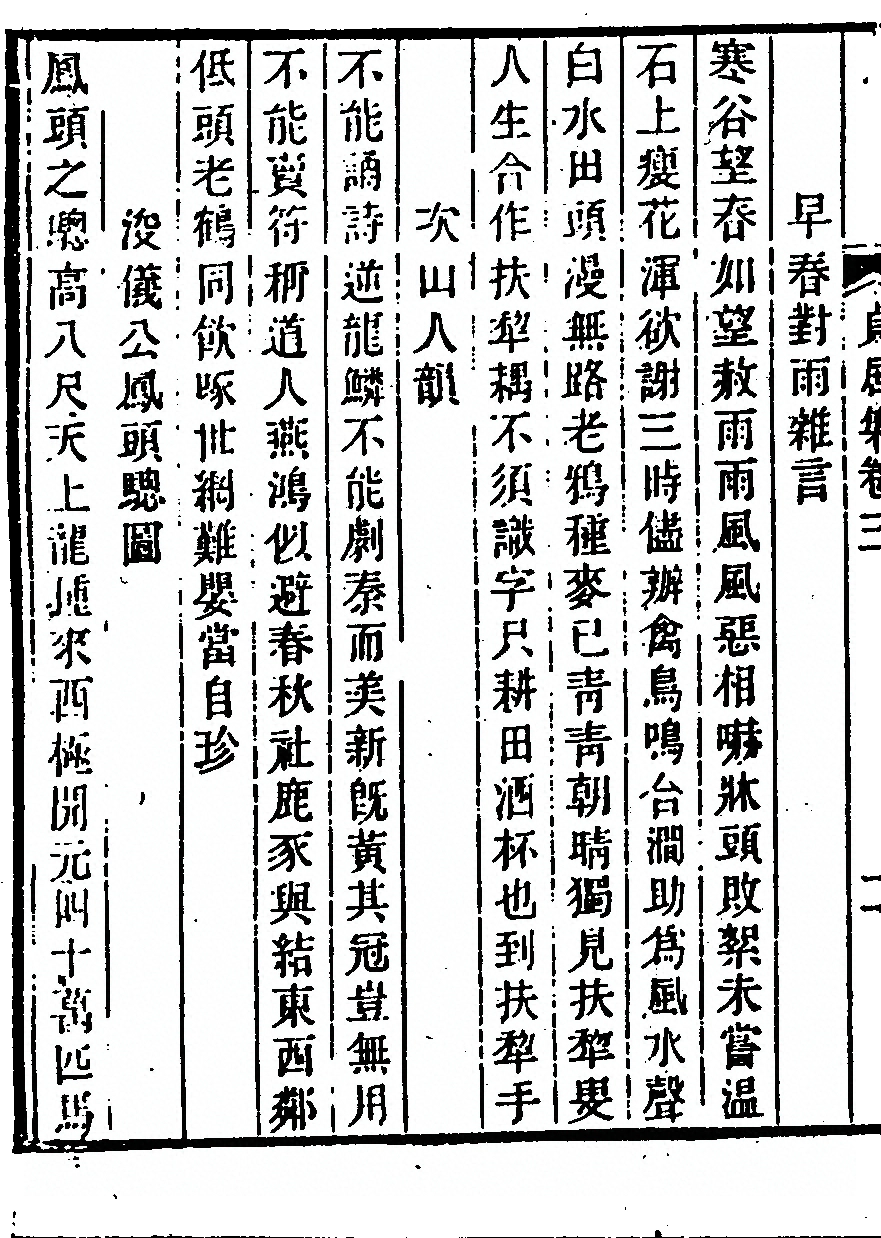 卷三
早春對雨雜言
寒谷望春如望赦雨雨風風惡相嚇牀頭敗絮未嘗温
石上瘦花渾欲謝三時儘辦禽鳥鳴台澗助爲風水聲
白水田頭漫無路老鴉種麥已青青朝晴獨見扶犂叟
人生合作扶犂耦不須識字只耕田洒杯也到扶犂手
次山人韻
不能誦詩逆龍鱗不能劇秦而美新旣黃其冠豈無用
不能賣符稱道人燕鴻似避春秋社鹿豕與結東西鄰
低頭老鶴同飲啄世網難嬰當自珍
浚儀公鳳頭驄圖
鳳頭之驄高八尺天上龍種來西極開元四十萬匹馬